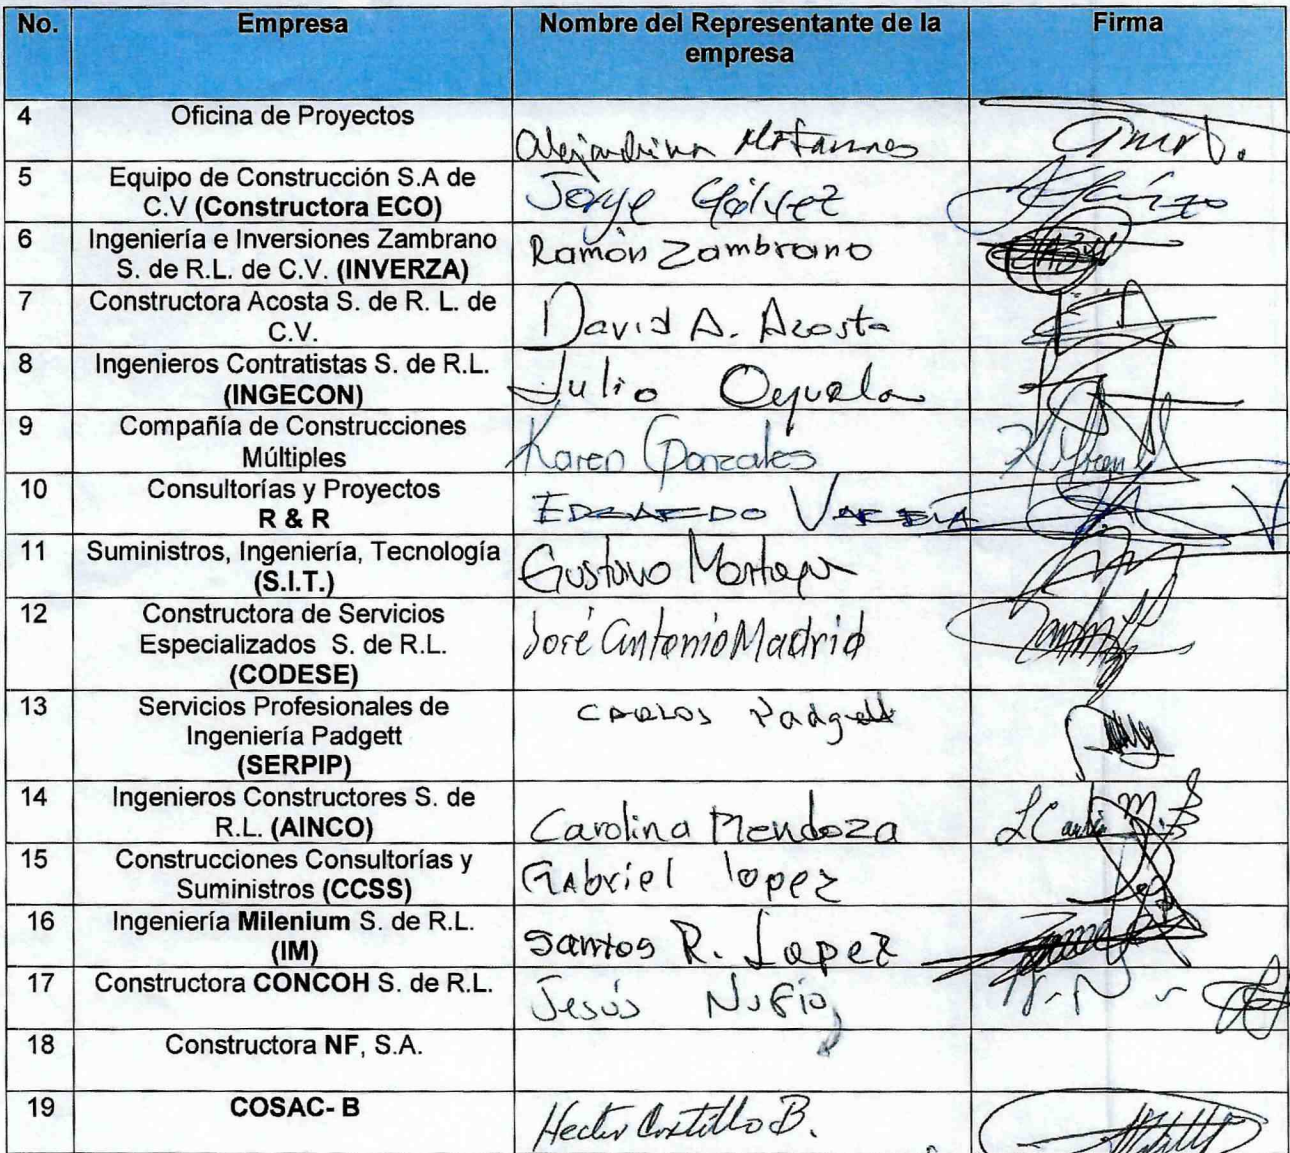 No. Empresa Nombre del Representante de la Firma
empresa
4 Oficina de Proyectos
Alejandrina
5 Equipo de Construcción S.A de
C.V (Constructora ECO) Jorge Gálvez
6 Ingeniería e Inversiones Zambrano
S. de R.L. de C.V. (INVERZA) Ramón Zambrano
7 Constructora Acosta S. de R. L. de
C.V. David A. Acosta
8 Ingenieros Contratistas S. de R.L.
(INGECON) Julio Oyuela
9 Compañía de Construcciones
Múltiples Karen Gonzales
10 Consultorías y Proyectos
R & R EDGARDO VARELA
11 Suministros, Ingeniería, Tecnología
(S.I.T.) Gustavo
12 Constructora de Servicios
Especializados S. de R.L. José Antonio Madrid
(CODESE)
13 Servicios Profesionales de CARLOS Padgett
Ingeniería Padgett
(SERPIP)
14 Ingenieros Constructores S. de
R.L. (AINCO) Carolina Mendoza
15 Construcciones Consultorías y
Suministros (CCSS) Gabriel lopez
16 Ingeniería Milenium S. de R.L.
(IM) Santos R. Lopez
17 Constructora CONCOH S. de R.L. Jesús Nufio
18 Constructora NF, S.A.
19 COSAC- B Hector Castillo B.